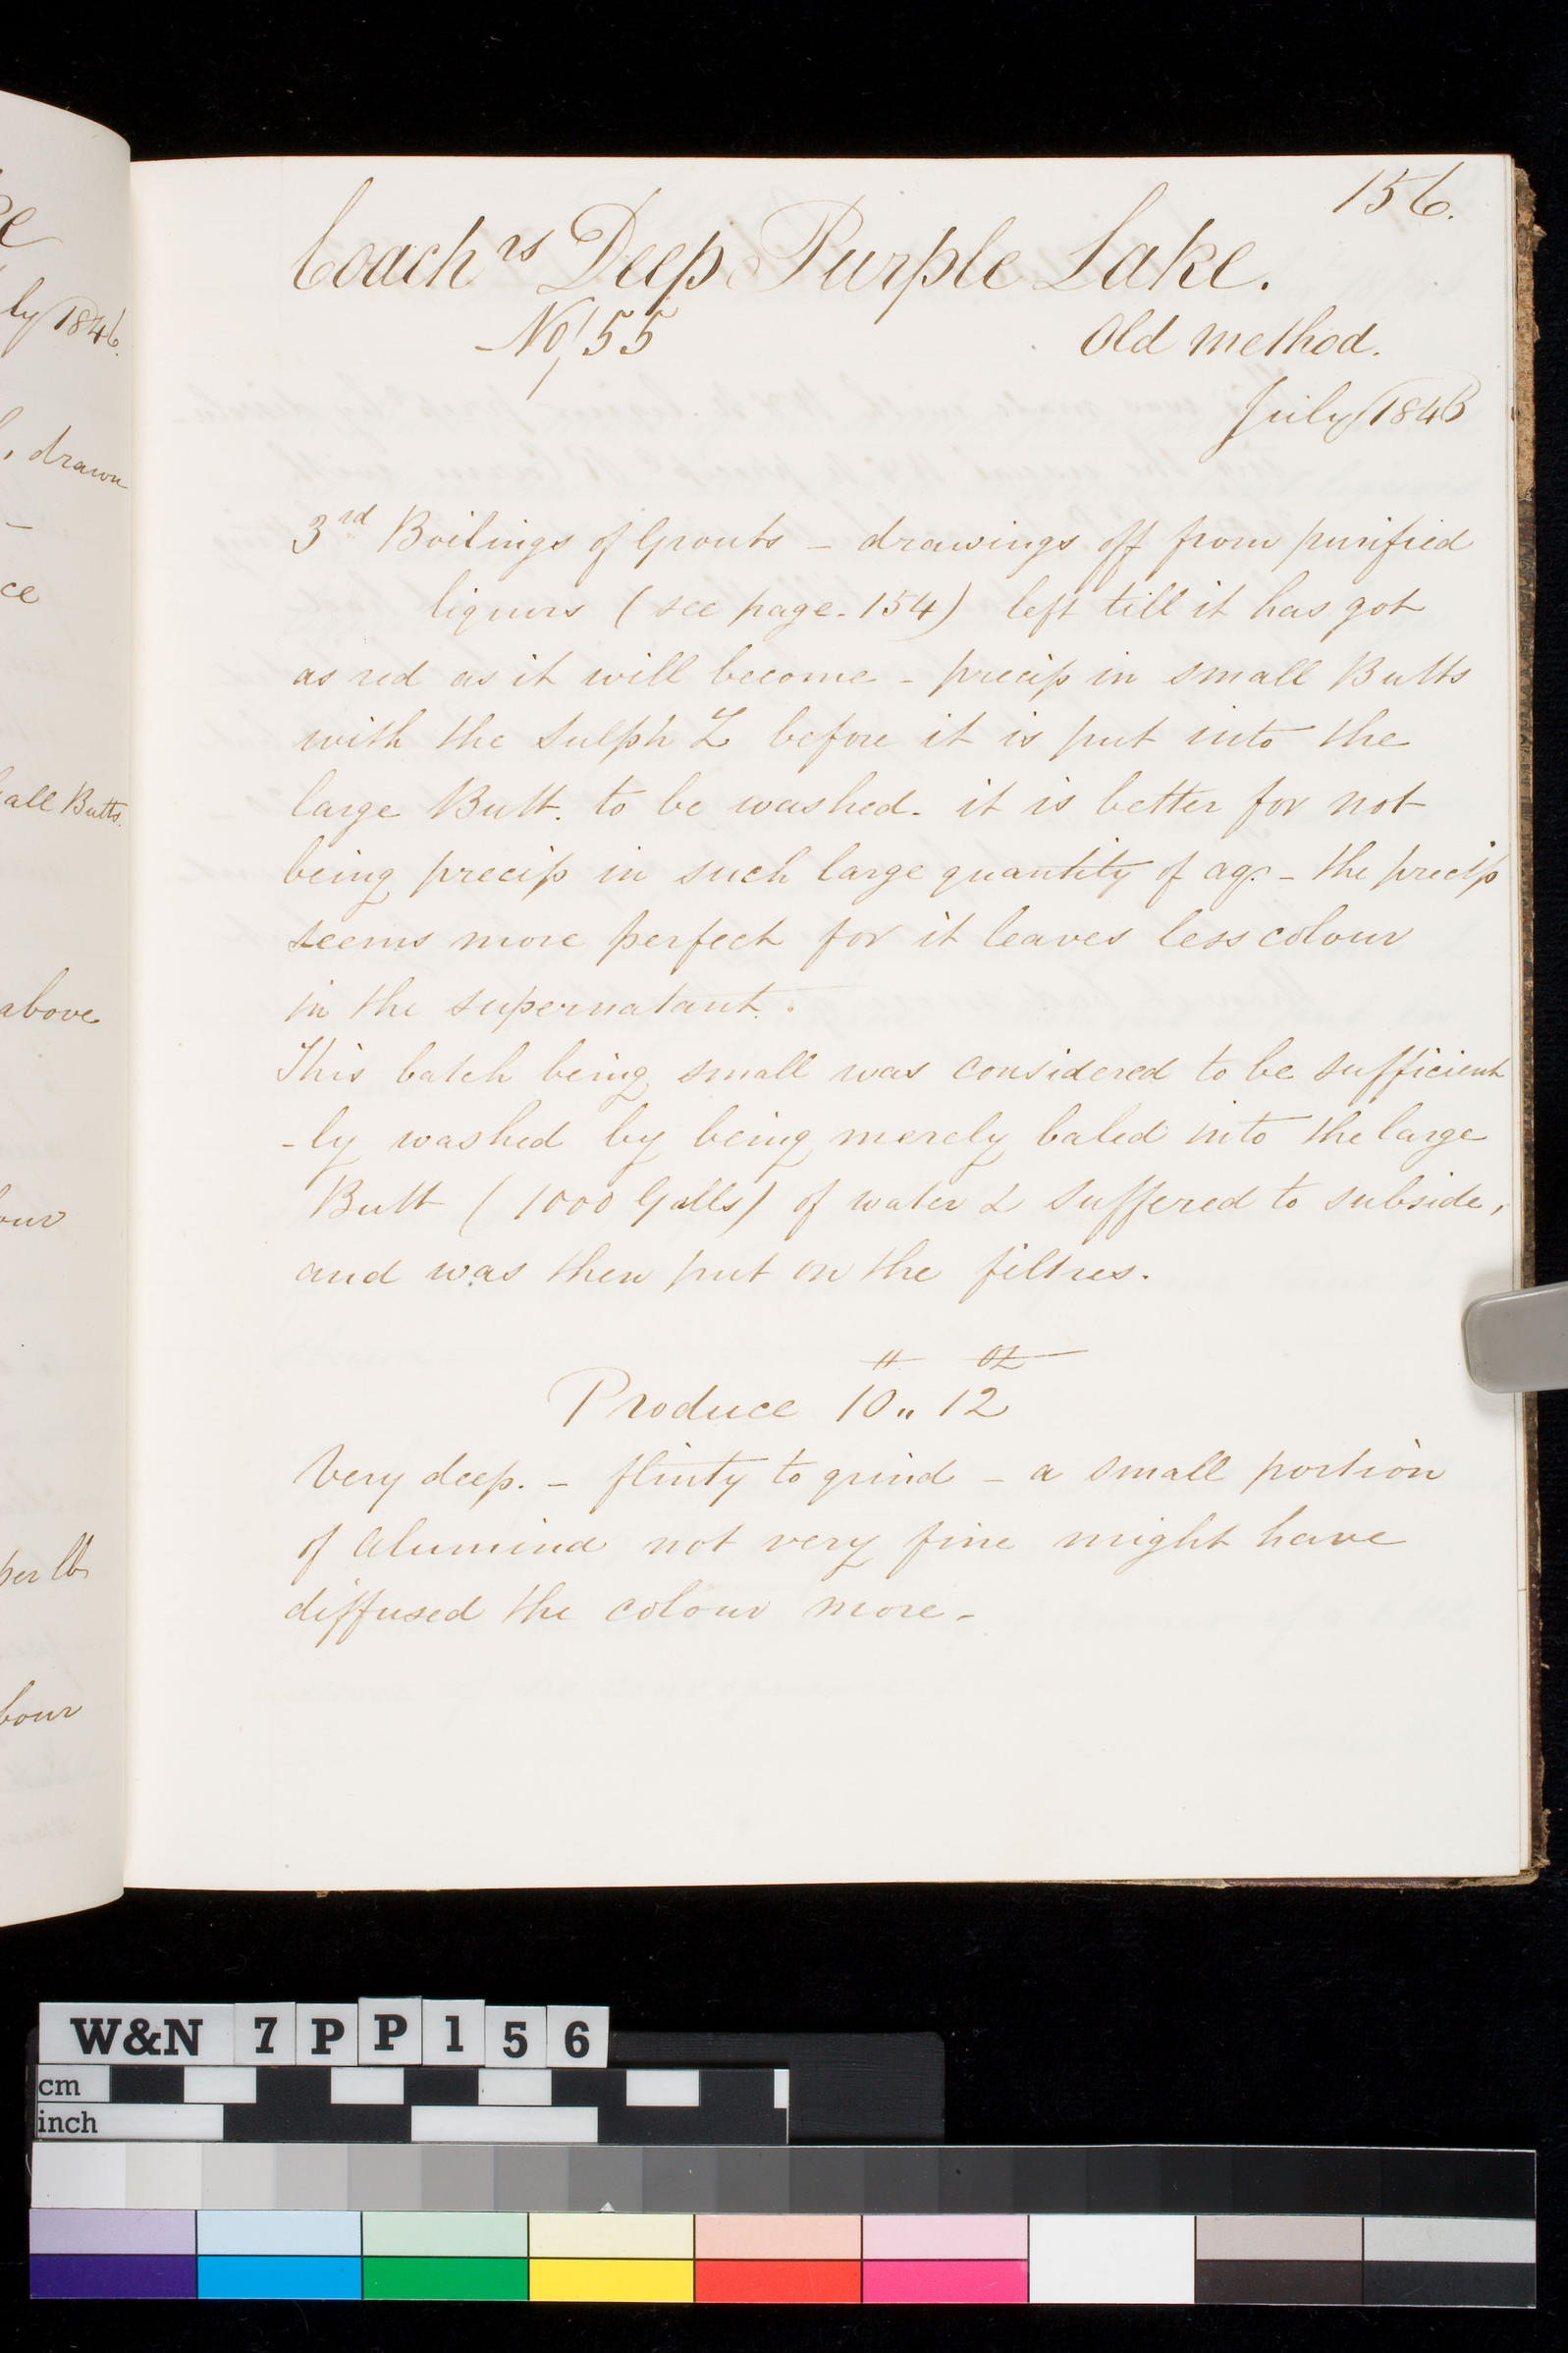 156.
Coachrs Deep Purple Lake.
No/ 55
Old method.
July/1846
3rd Boilings of Grouts - drawings off from purified
liquors (see page. 154) left till it has got
as red as it will become - precip in small Butts
with the Sulph Z before it is put into the
large Butt. to be washed. it is better for not
being precip in such large quantity of aq. - the precip
seems more perfect for it leaves less colour
in the supernatant.
This batch being small was considered to be sufficient
-ly washed by being merely baled into the large
Butt (1000 Galls) of water & suffered to subside,
and was then put on the filtres.
# oz
Produce 10 " 12
Very deep. - flinty to grind - a small portion
of alumina not very fine might have
diffused the colour more -
ly/1846.
, drawn
ce
all Butts.
above
our
per lb
bour
W&N 7PP156
cm
inch